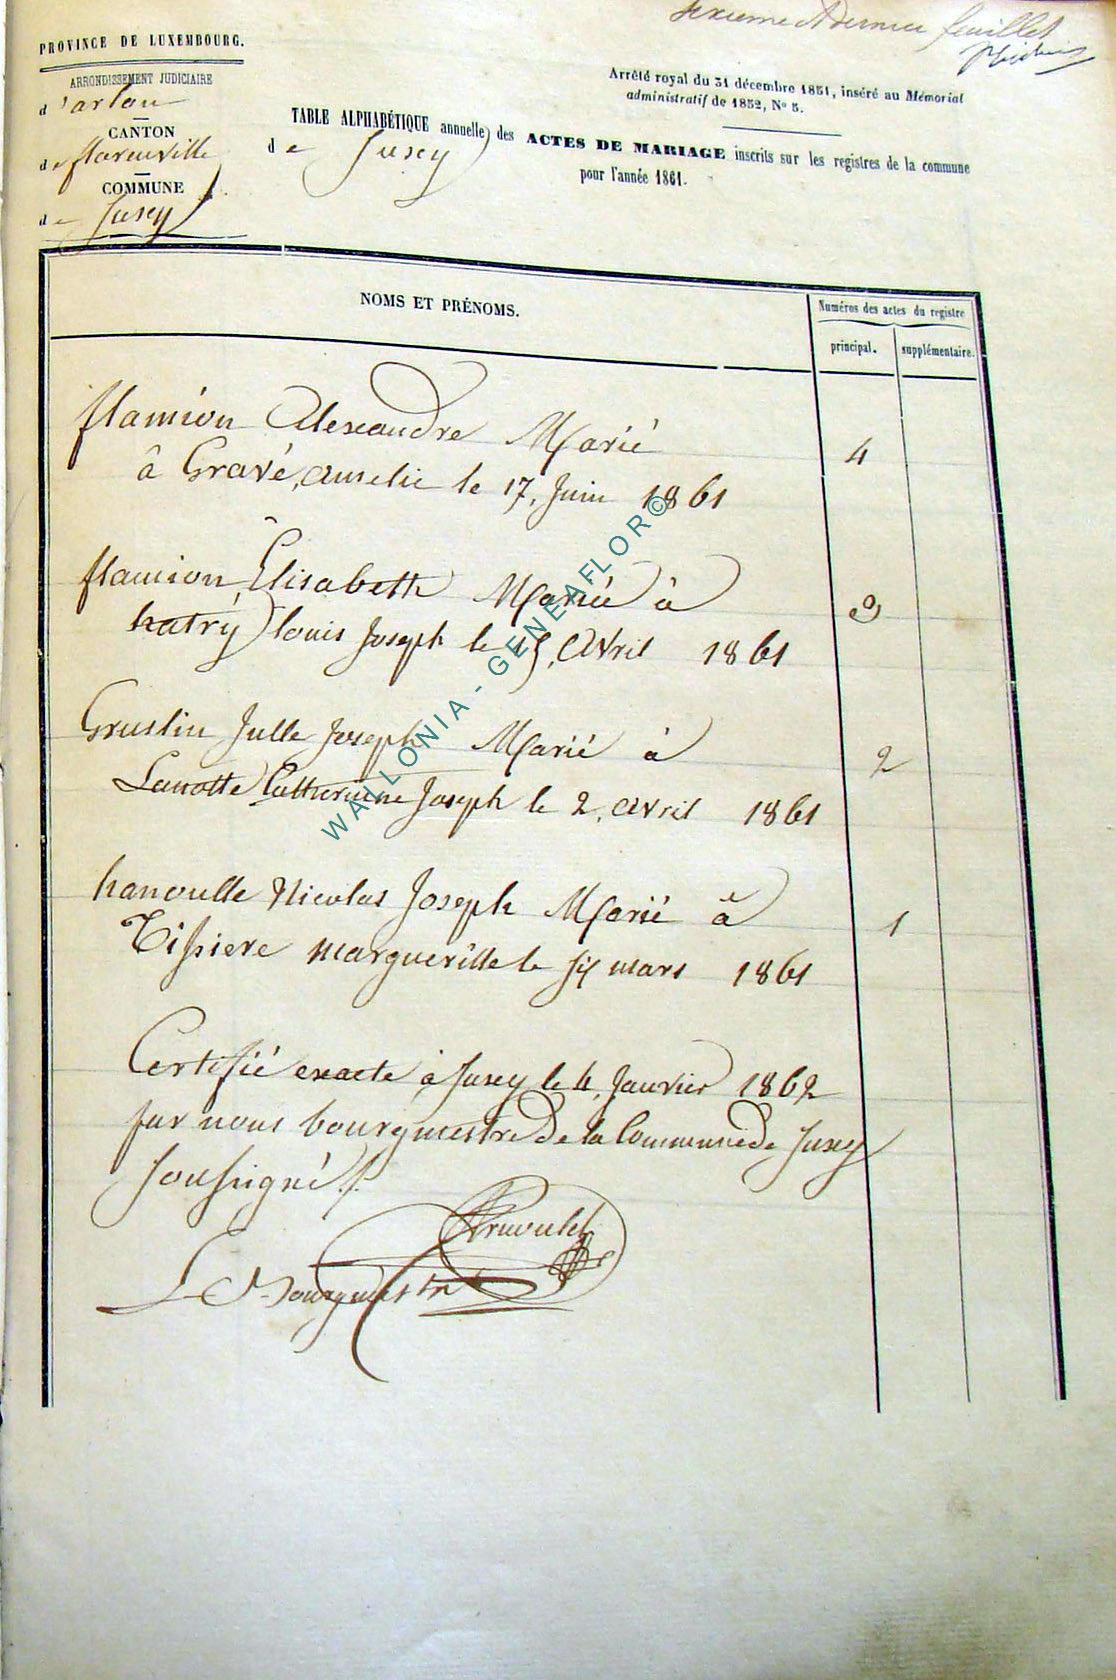 sixieme et dernier feuillet
PROVINCE DE LUXEMBOURG.
ARRONDISSEMENT JUDICIAIRE
d'arlon
CANTON
de florenville
COMMUNE
de Jusey
Arrêté royal du 31 décembre 1851, inséré au Mémorial
administratif de 1852, No 5.
TABLE ALPHABÉTIQUE annuelle des ACTES DE MARIAGE inscrits sur les registres de la commune
de Jusey pour l'année 1861.
NOMS ET PRÉNOMS.
Numéros des actes du registre
principal. supplémentaire.
flamion Alexandre Marié
à Gravé, amelie le 17, Juin 1861 4
flamion, Élisabeth Mariée à
hatry louis Joseph le 15, Avril 1861 3
Gruslin Julle Joseph Marié à
Lanotte Catherinne Joseph le 2, avril 1861 2
hanoulle Nicolas Joseph Marié à
Tissiere margueritte le mars 1861 1
Certifié exacte à Jusey le 4, Janvier 1862
par nous bourgmestre de la Commune de Jusey
soussigné
Le Bourgmestre
WALLONIA - GENEAFLOR©